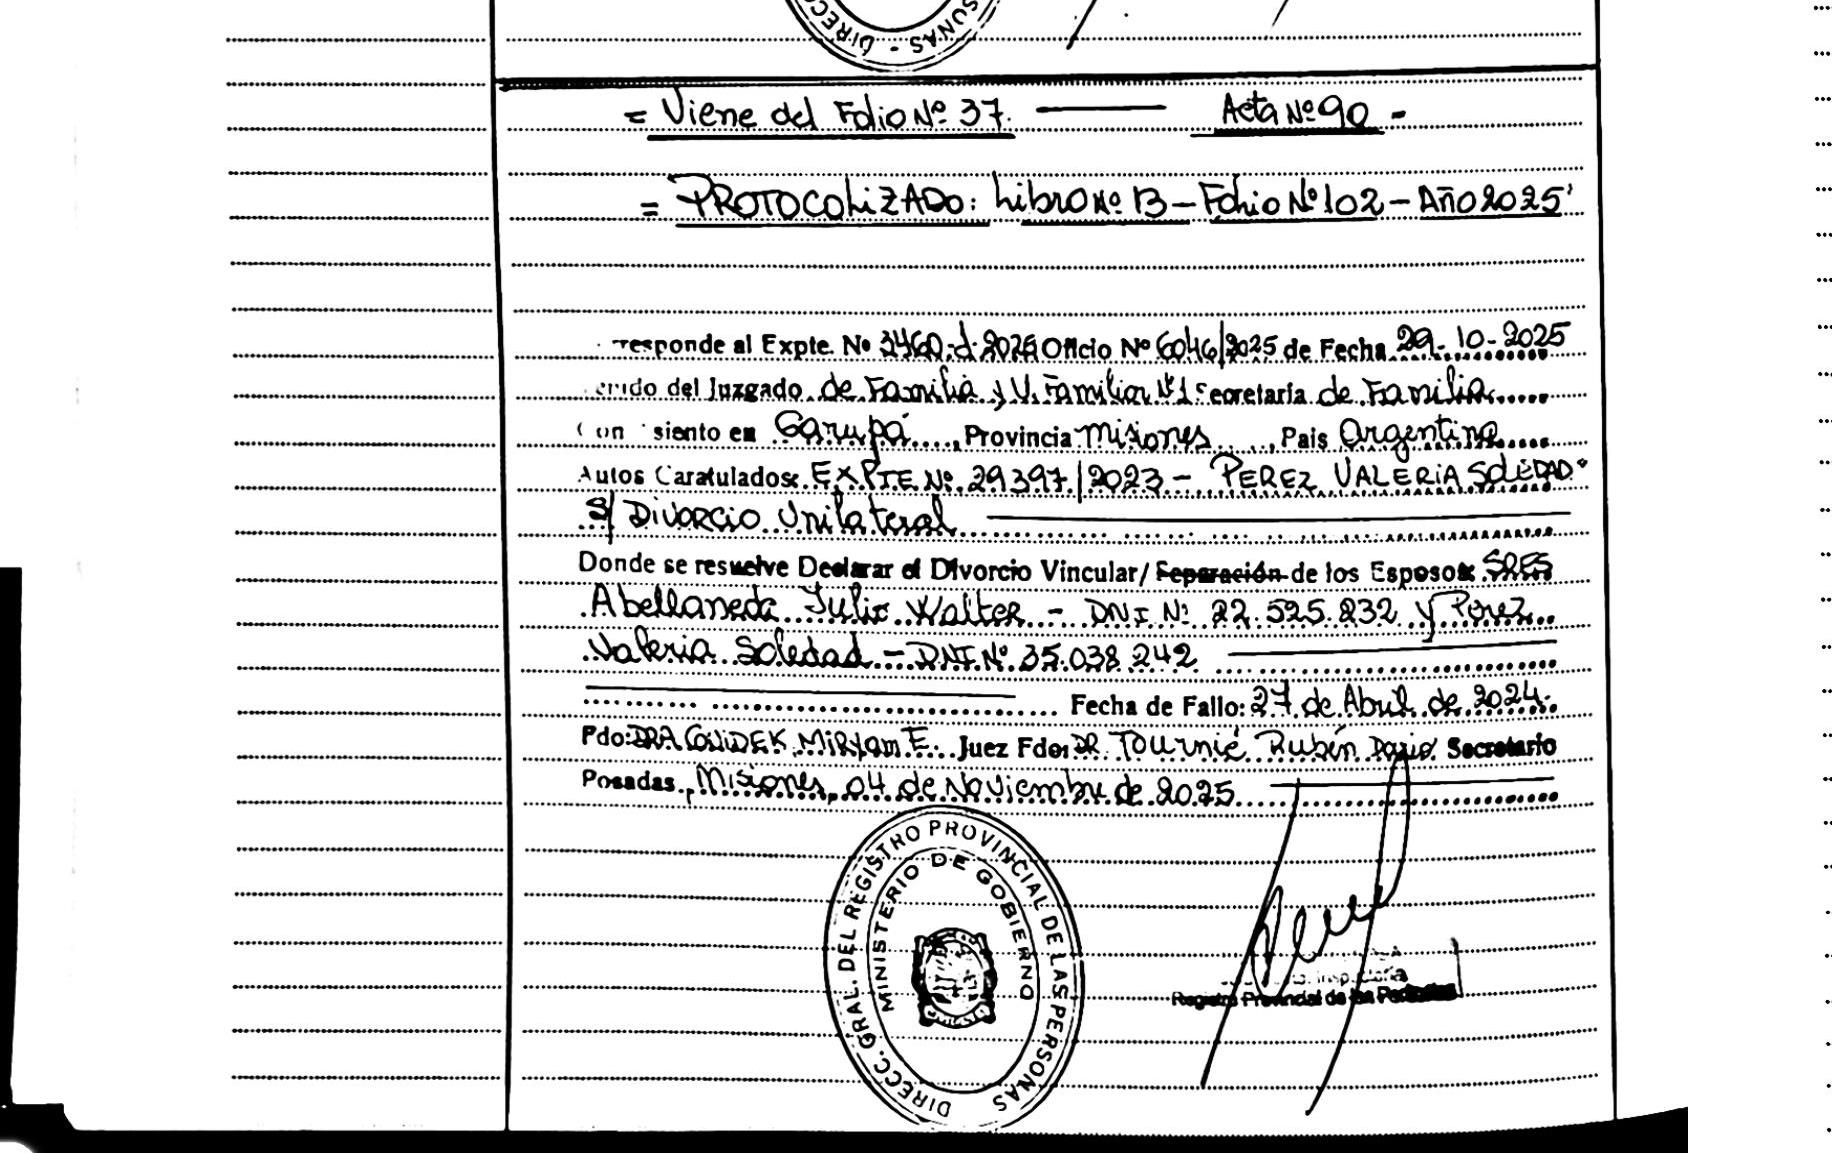 DIRECC SONAS -
= Viene del Folio Nº 37. — Acta Nº 90 -
= PROTOCOLIZADO: Libro Nº 13 - Folio Nº 102 - Año 2025
responde al Expte. Nº 3460-d-2025 Oficio Nº 6046/2025 de Fecha 29-10-2025
del Juzgado de Familia y V. Familiar Nº 1 Secretaría de Familia
Con siento en Garupá, Provincia Misiones, Pais Argentina
Autos Caratulados: EXPTE Nº 29397/2023 - PEREZ VALERIA SOLEDAD
S/ DIVORCIO Unilateral
Donde se resuelve Declarar el Divorcio Vincular/ Separación de los Esposos: SRES
Abellaneda Julio Walter - DNI Nº 22.525.232 y Perez
Valeria Soledad - DNI Nº 35.038.242
Fecha de Fallo: 27 de Abril de 2024.
Pdo: DRA Miryam E. Juez Fdo: DR. Tournié Rubín Dario Secretario
Posadas, Misiones, 04 de Noviembre de 2025
DIRECC. GRAL. DEL REGISTRO PROVINCIAL DE LAS PERSONAS
MINISTERIO DE GOBIERNO
Registro Provincial de las Personas